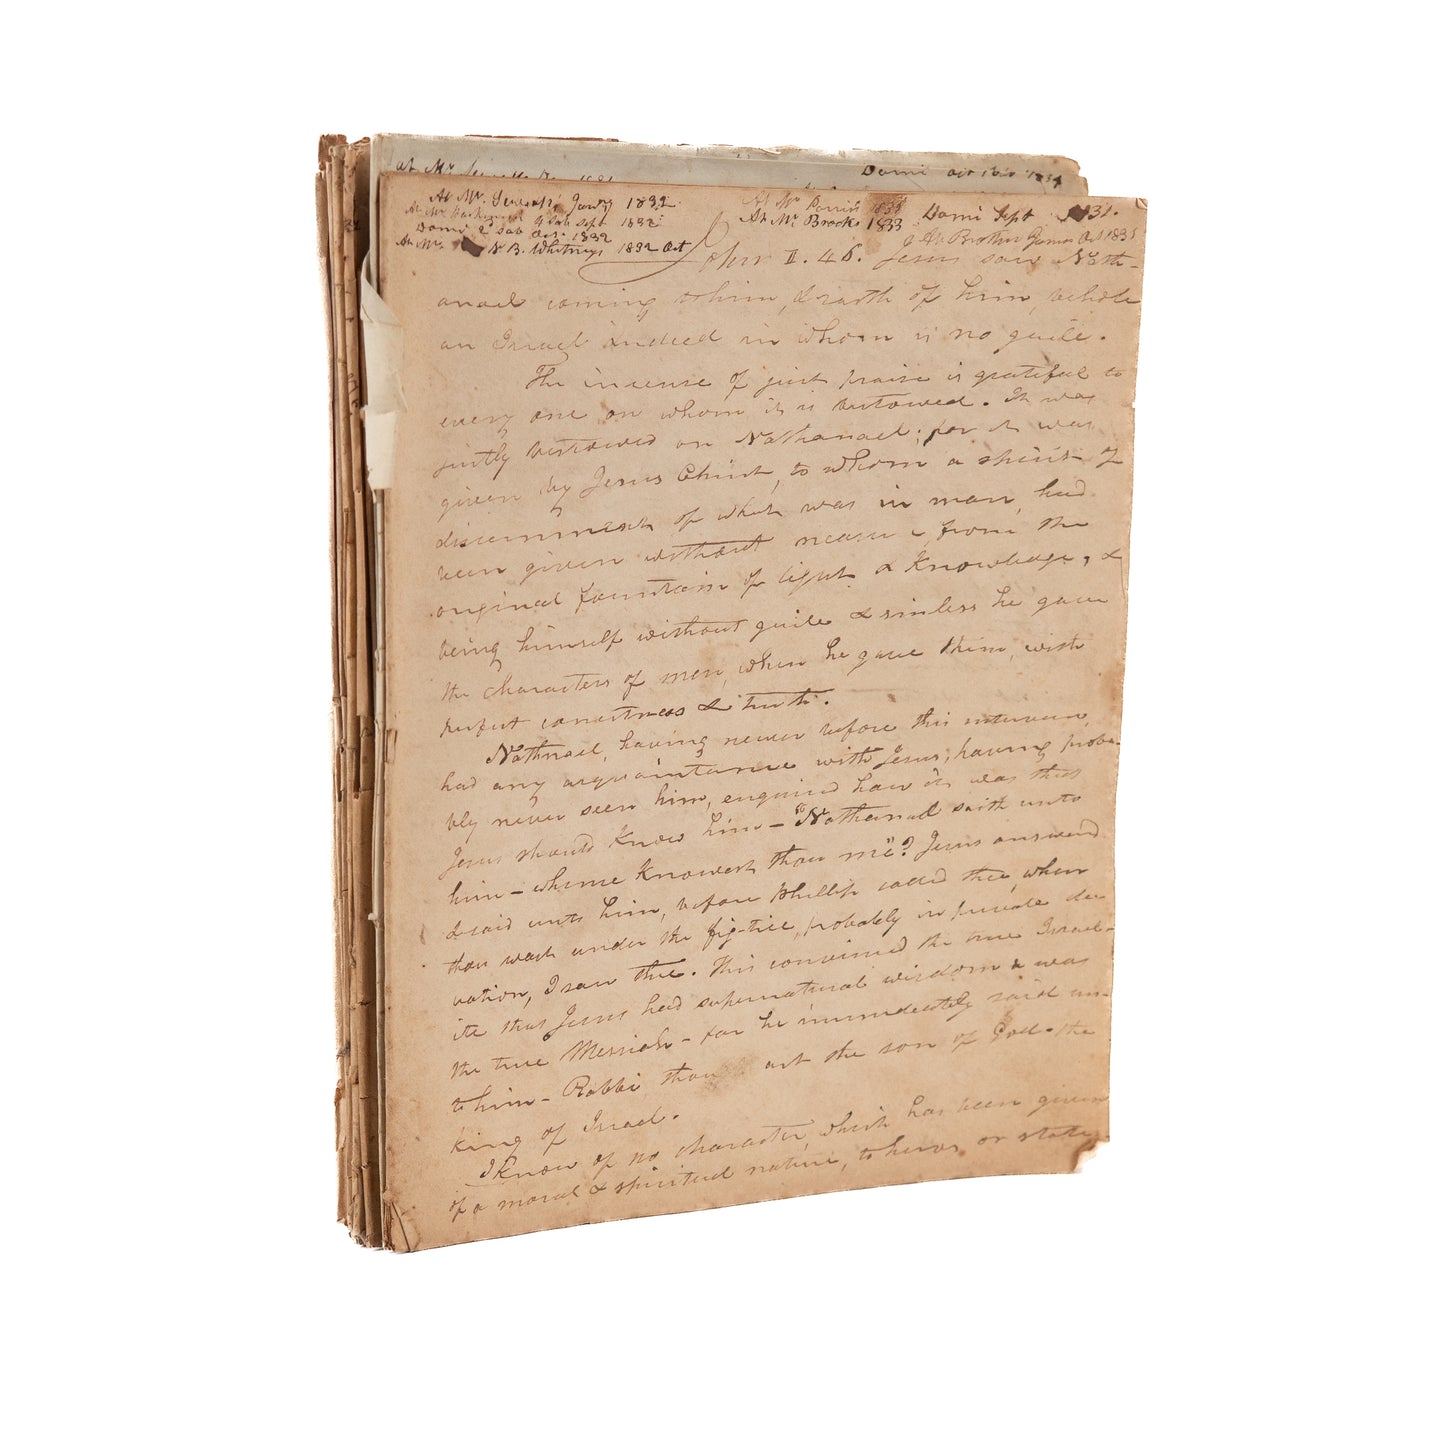 at Mr
Domi Oct 1834
At Mr. Jany 1832.
At Mr Parish 1833
Domi Sept 1831.
At Mr 4 Sab Sept 1832.
At Mr. Brooks 1833
Domi 2d Sab Oct. 1832
At Brother James Oct 1835
At Mr. N. B. Whitneys 1832 Oct
John I. 46. Jesus saw Nath-
anael coming to him, & saith of him, behold
an Israel indeed in whom is no guile.
The incense of just praise is grateful to
every one on whom it is bestowed. It was
justly bestowed on Nathanael; for it was
given by Jesus Christ, to whom a spirit of
discernment of what was in man, had
been given without measure, from the
original fountain of light & knowledge, &
being himself without guile & sinless he gave
the characters of men, when he gave them, with
perfect correctness & truth.
Nathnael, having never before this interview,
had any acquaintance with Jesus, having proba-
bly never seen him, enquired how it was that
Jesus should know him - "Nathanael saith unto
him - whence knowest thou me"? Jesus answered
& said unto him, before Phillip called thee, when
thou wast under the fig-tree, probably in private de-
votion, I saw thee. This convinced the true Israel-
ite that Jesus had supernatural wisdom & was
the true Messiah - for he immedeately said un-
to him - Rabbi thou art the son of God - the
king of Israel.
I know of no character, which has been given
of a moral & spiritual nature, to heros or states